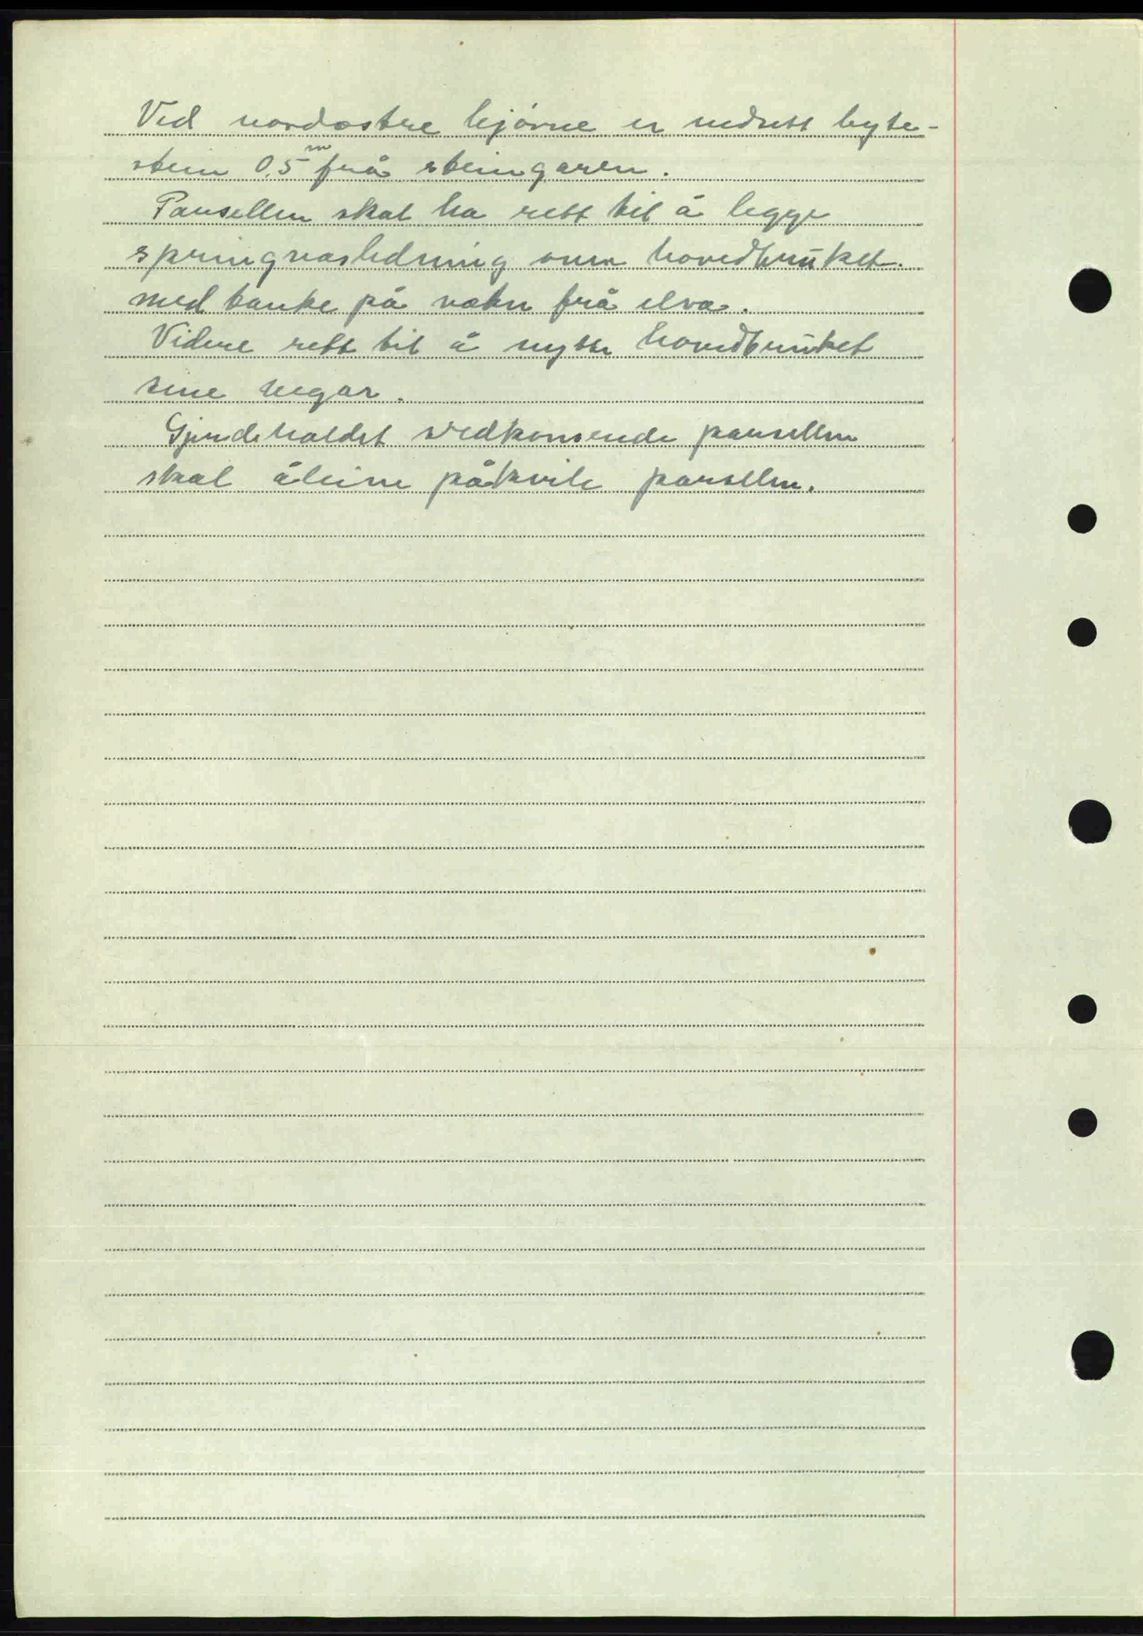 Ved nordøstre hjørne er nedsett byte-
stein 0,5 m frå steingaren.
Parsellen skal ha rett til å legge
springvasledning over hovedbruket
med tanke på vatn frå elva.
Videre rett til å nytte hovedbruket
sine vegar.
Gjerdehaldet vedkomende parsellen
skal åleine påkvile parsellen.